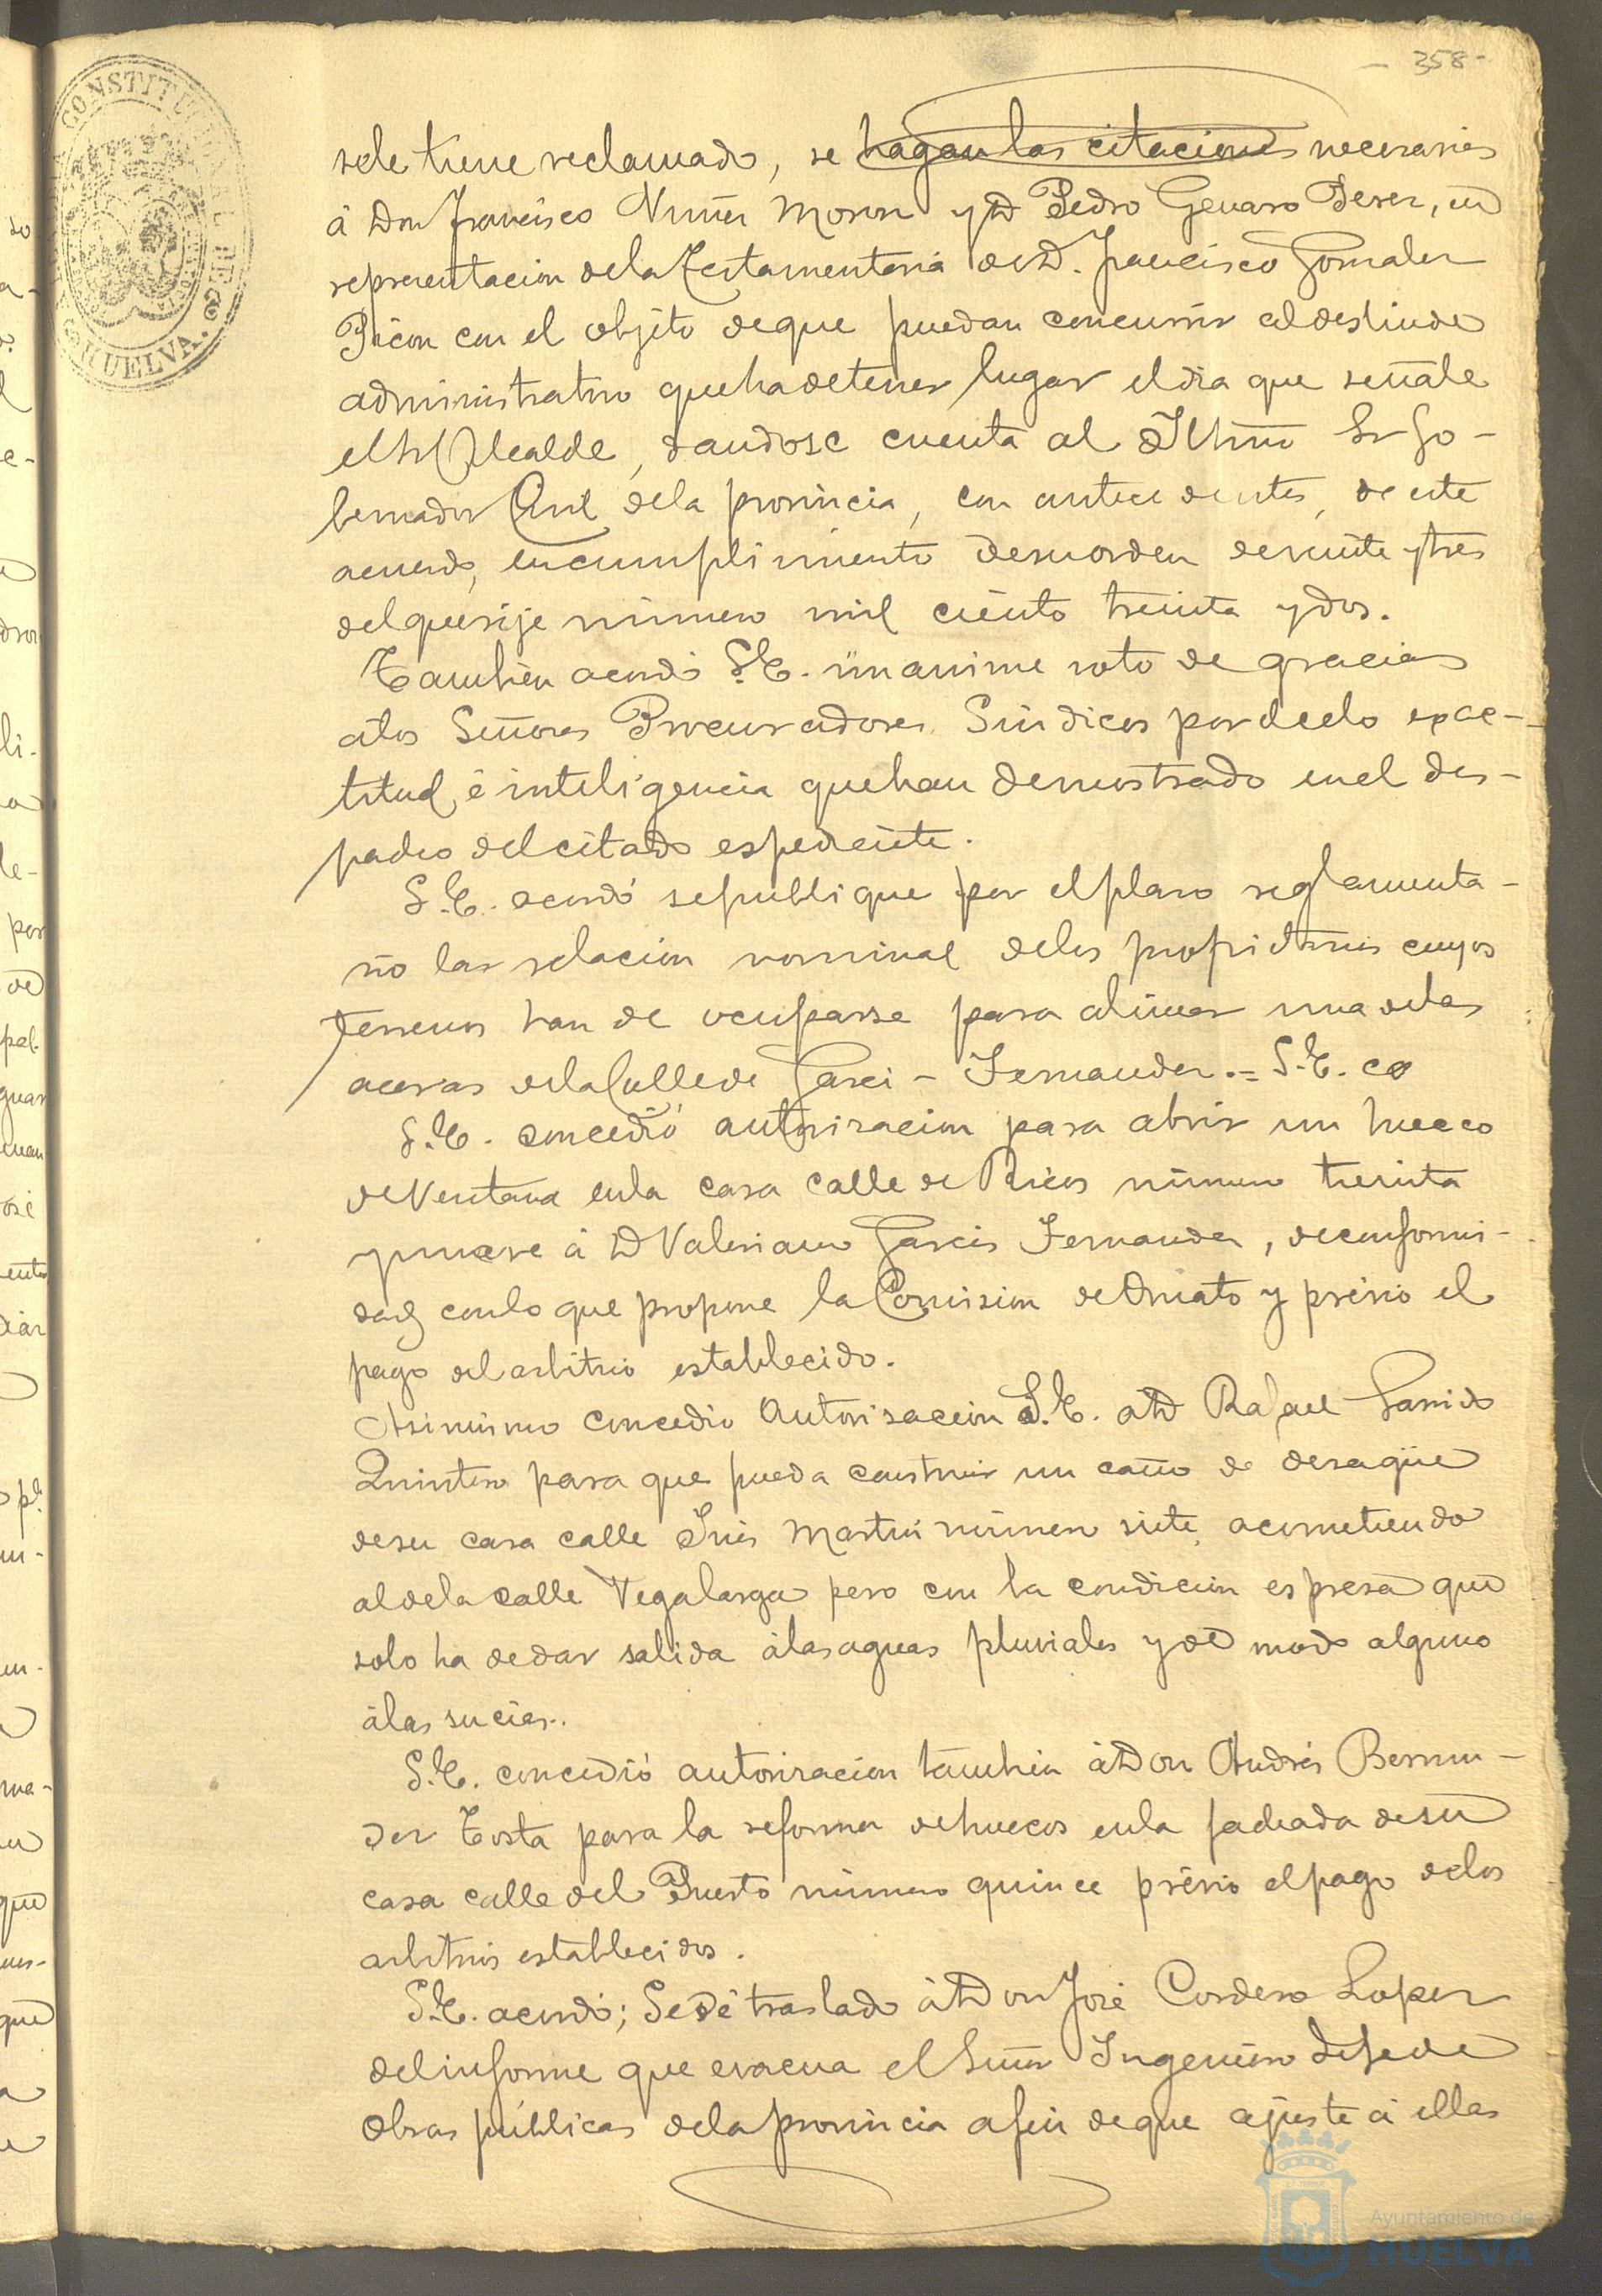 - 358 -
CONSTITUCIONAL DE
HUELVA.
se le tiene reclamado, se hagan las citaciones necesarias
á Don Francisco Nuñez Moron y D Pedro Genaro Perez, en
representacion de la Testamentaria de D. Francisco Gonzalez
Picon con el objeto de que puedan concurrir al deslinde
administrativo que ha de tener lugar el dia que señale
el Sr Alcalde, dandose cuenta al Iltmo Sr Go-
bernador Civil de la provincia, con antecedentes, de este
acuerdo, en cumplimiento de su orden de veinte y tres
del que rije número mil ciento treinta y dos.
Tambien acordó S.E. unanime voto de gracias
a los Señores Procuradores Sindicos por el celo exac-
titud é inteligencia que han demostrado en el des-
pacho del citado espediente.
S.E. acordó se publique por el plazo reglamenta-
rio las relacion nominal de los propietarios cuyos
terrenos han de ocuparse para alinear una de las
aceras de la Calle de Garci-Fernandez.= S.E. co
S.E. concedió autorizacion para abrir un hueco
de Ventana en la casa calle de Ricos número treinta
y nueve á D Valeriano Garcia Fernandez, de conformi-
dad con lo que propone la Comision de Ornato y prévio el
pago del arbitrio establecido.
Asimismo concedio Autorisacion S.E. a D Rafael Garrido
Quintero para que pueda construir un caño de desagüe
de su casa calle Inés Martin número siete, acometiendo
al de la calle Vegalarga pero con la condicion espresa que
solo ha de dar salida á las aguas pluviales y de modo alguno
á las sucias.
S.E. concedió autorizacion tambien á Don Andrés Bermu-
dez Tosta para la reforma de huecos en la fachada de su
casa calle del Puerto número quince prévio el pago de los
arbitrios establecidos.
S.E. acordó; Se dé traslado á Don José Cordero Lopez
del informe que evacua el Señor Ingeniero Jefe de
Obras públicas de la provincia a fin de que ajuste á ellas
Ayuntamiento de
HUELVA